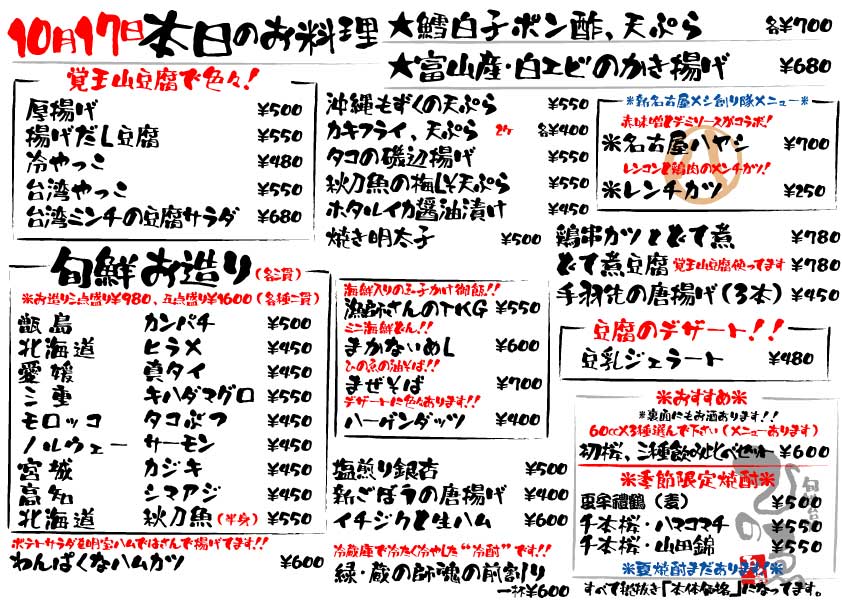 10月17日 本日のお料理
★鱈白子ポン酢、天ぷら 各¥700
★富山産・白エビのかき揚げ ¥680
覚王山豆腐で色々!
厚揚げ ¥500
揚げだし豆腐 ¥550
冷やっこ ¥480
台湾やっこ ¥550
台湾ミンチの豆腐サラダ ¥680
沖縄もずくの天ぷら ¥550
カキフライ、天ぷら 2ケ 各¥400
タコの磯辺揚げ ¥550
秋刀魚の梅しそ天ぷら ¥550
ホタルイカ醤油漬け ¥450
焼き明太子 ¥500
※新名古屋メシ創り隊メニュー※
赤味噌とデミソースがコラボ!
※名古屋ハヤシ ¥700
レンコンと鶏肉のメンチカツ!
※レンチカツ ¥250
鶏串カツとどて煮 ¥780
どて煮豆腐 覚王山豆腐使ってます ¥780
手羽先の唐揚げ(3本) ¥450
旬鮮お造り(各二貫)
※お造り三点盛り¥980、五点盛り¥1600(各種二貫)
甑島 カンパチ ¥500
北海道 ヒラメ ¥450
愛媛 真タイ ¥450
三重 キハダマグロ ¥550
モロッコ タコぶつ ¥450
ノルウェー サーモン ¥450
宮城 カジキ ¥450
高知 シマアジ ¥450
北海道 秋刀魚(半身) ¥550
ポテトサラダを明宝ハムではさんで揚げてます!!
わんぱくなハムカツ ¥600
海鮮入りの玉子かけ御飯!!
漁師さんのTKG ¥550
ミニ海鮮どん!!
まかないめし ¥600
ひの魚の油そば!!
まぜそば ¥700
デザートに色々あります!!
ハーゲンダッツ ¥400
塩煎り銀杏 ¥500
新ごぼうの唐揚げ ¥400
イチジクと生ハム ¥600
冷蔵庫で冷たく冷やした“冷酎”です!!
緑・蔵の師魂の前割り
一杯¥600
豆腐のデザート!!
豆乳ジェラート ¥480
※おすすめ※
※裏面にもお酒あります!!
60cc×3種選んで下さい(メニューあります)
初桜、三種飲み比べセット ¥600
※季節限定焼酎※
(麦) ¥500
千本桜・ハマコマチ ¥550
千本桜・山田錦 ¥550
※夏焼酎まだあります※
すべて税抜き「本体価格」になってます。